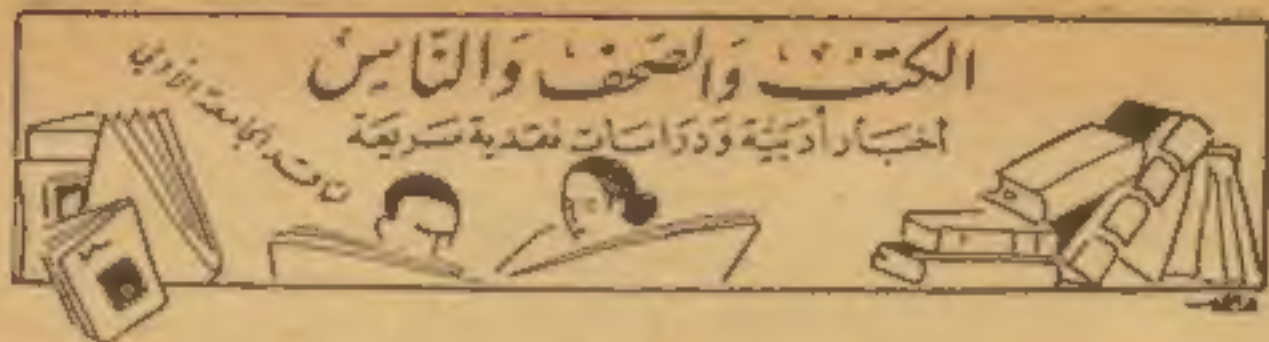 الكتب والصحف والناس
أخبار أدبية ودراسات نقدية سريعة
ناقد الجامعة الأدبي